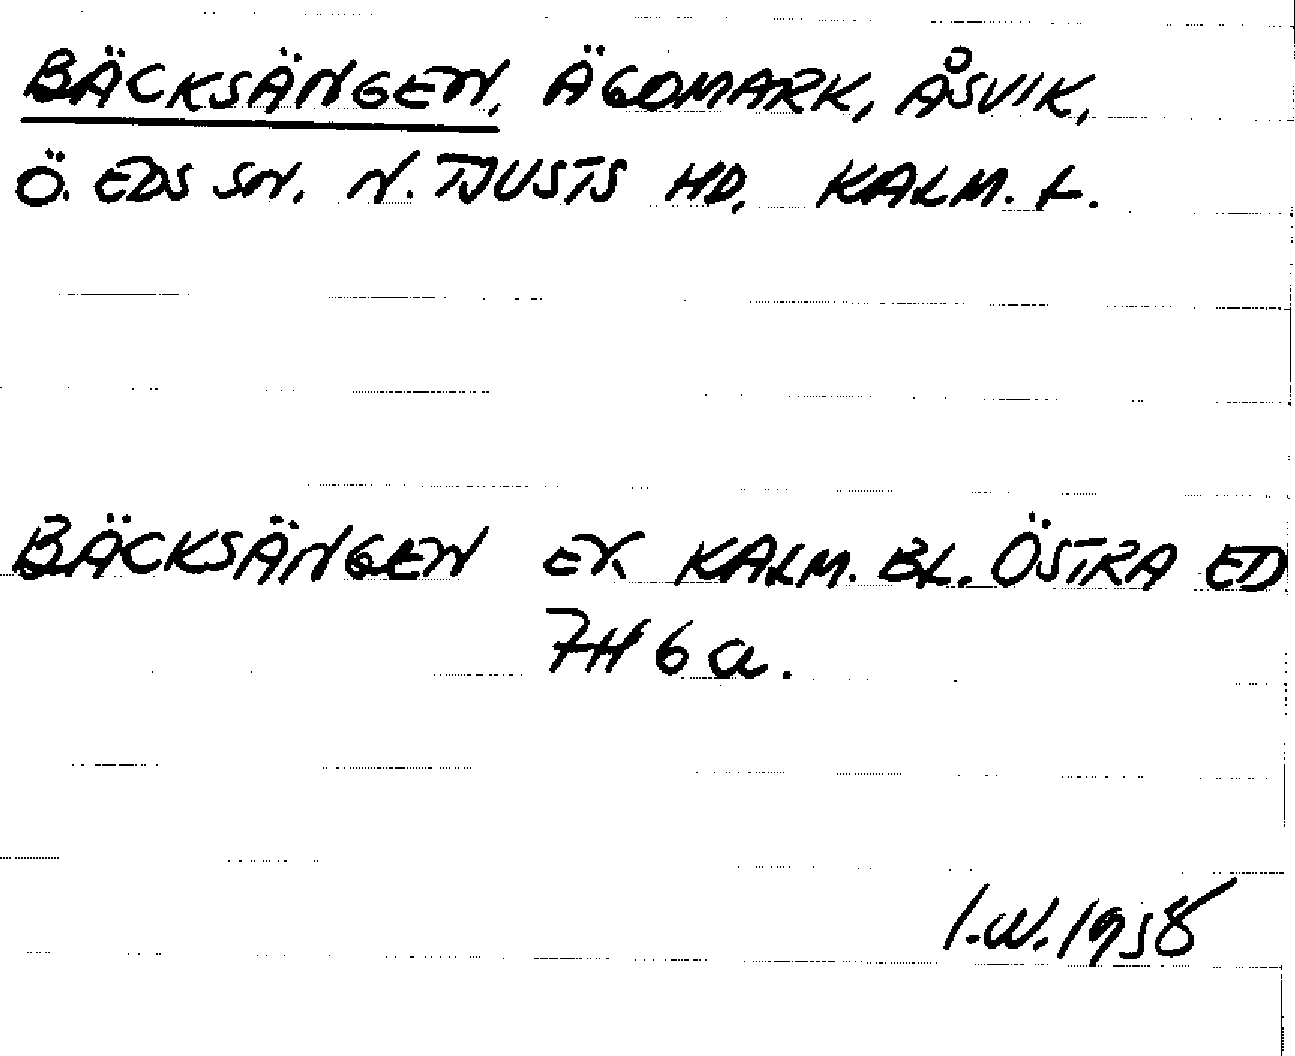 BÄCKSÄNGEN, ÄGOMARK, ÅSVIK,
Ö. EDS SN. N. TJUSTS HD, KALM. L.
BÄCKSÄNGEN EK. KALM. BL. ÖSTRA ED
7H 6a.
I.W. 1958